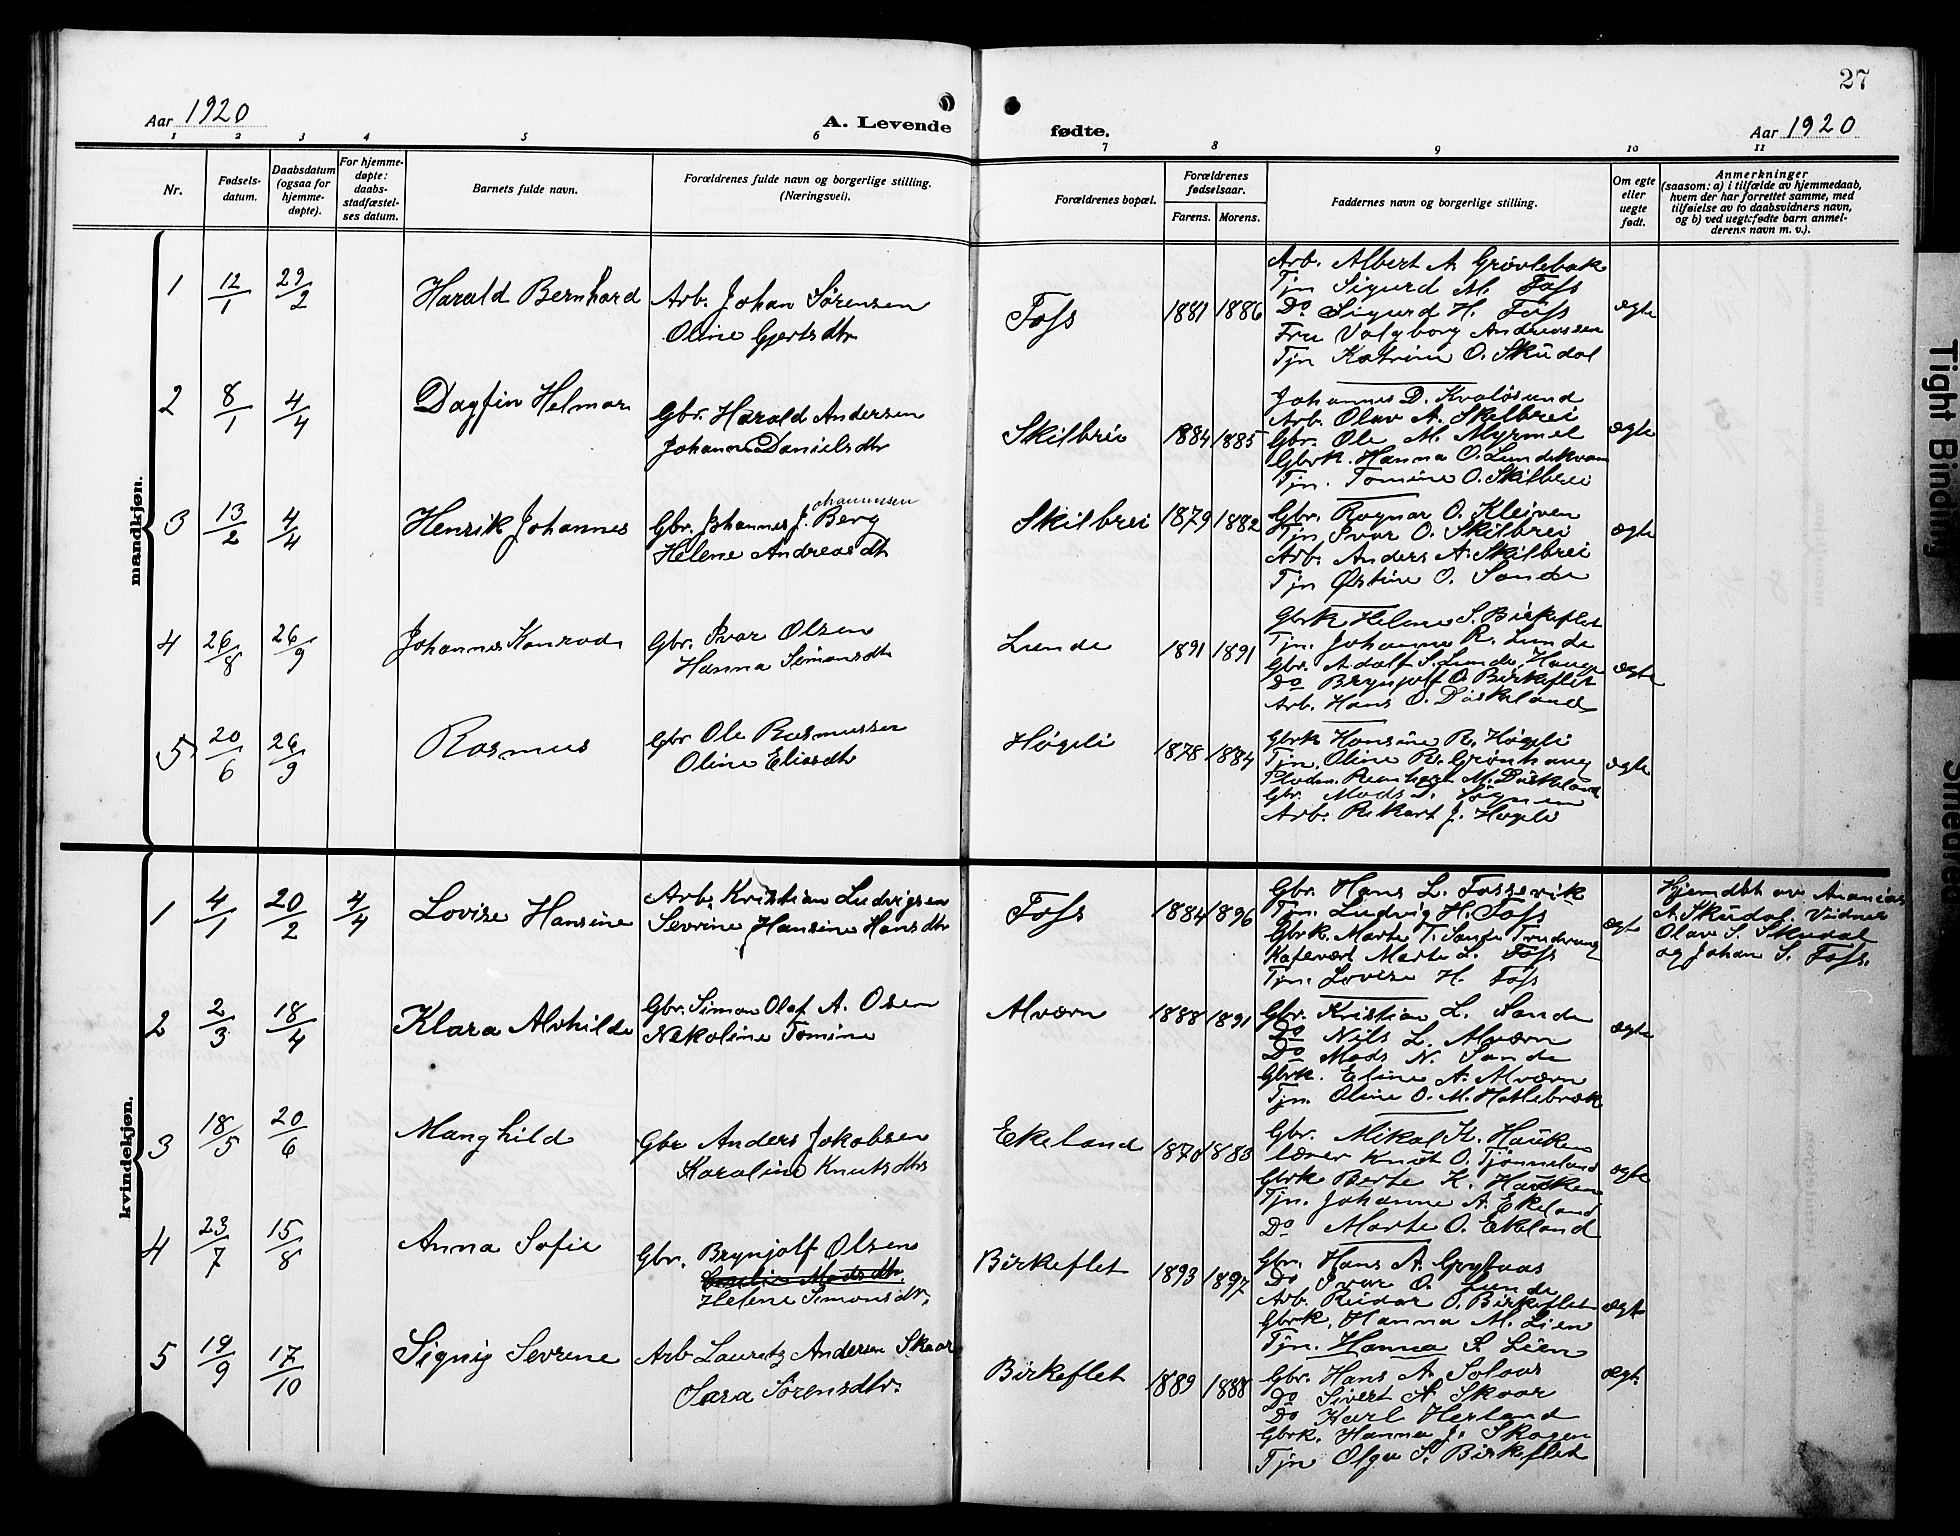 27
Aar 1920
A. Levende
fødte.
Aar 1920
1 2 3 4 5 6 7 8 9 10 11
Nr.
Fødsels-
datum.
Daabsdatum
(ogsaa for
hjemme-
døpte).
For hjemme-
døpte:
daabs-
stadfæstel-
ses datum.
Barnets fulde navn.
Forældrenes fulde navn og borgerlige stilling.
(Næringsvei).
Forældrenes bopæl.
Forældrenes
fødselsaar.
Farens. Morens.
Faddernes navn og borgerlige stilling.
Om egte
eller
uegte
født.
Anmerkninger
(saasom: a) i tilfælde av hjemmedaab,
hvem der har forrettet samme, med
tilføielse av to daabsvidners navn,
og b) ved uegtefødte barn anmel-
derens navn m. v.).
mandkjøn.
1 12/1 29/2 Harald Bernhard
Arb. Johan Sørensen
Oline Gjertsdtr
Foss 1881 1886
Arb. Albert A. Grøvlebak
Tjn Sigurd M. Foss
Do Sigurd H. Foss
Fru Valgborg Andreassen
Tjn Katrine O. Skudal
ægte
2 8/1 4/4 Dagfin Helmar
Gbr. Harald Andersen
Johanne Danielsdtr
Skilbrei 1884 1885
Johannes D. Kvaløsund
Arb. Olav A. Skilbrei
Gbr. Ole M. Myrmel
Gbrk. Hanna O. Lundekvam
Tjn. Tomine O. Skilbrei
ægte
3 13/2 4/4 Henrik Johannes
Gbr. Johannes J. Berg
ohannessen
Helene Andreasdtr
Skilbrei 1879 1882
Gbr. Ragnar O. Kleiven
Tjn Ivar O. Skilbrei
Arb. Anders A. Skilbrei
Tjn Østine O. Sande
ægte
4 26/8 26/9 Johannes Konrad
Gbr. Ivar Olsen
Hanna Simonsdtr
Lunde 1891 1891
Gbrk Helene S. Birkeflet
Tjn. Johanna R. Lunde
Gbr. Adolf S. Lunde, Hauge
Do Brynjolf O. Birkeflet
Arb. Hans O. Døskeland
ægte
5 20/6 26/9 Rasmus
Gbr Ole Rasmussen
Oline Eliasdtr
Høgeli 1878 1884
Gbrk Hansine R. Høgeli
Tjn. Oline R. Grønhaug
Reinhart M. Døskeland
Gbr. Mads D.
Arb. Rikart J. Høgeli
ægte
kvindekjøn.
1 4/1 20/2 4/4 Lovise Hansine
Arb. Kristian Ludvigsen
Sevrine Hansine Hansdtr
Foss 1884 1896
Gbr. Hans L. Fossevik
Tjn. Ludvig H. Foss
Gbrk. Marte T.
Kafevært Marte L. Foss
Tjn. Lovise H. Foss
ægte
Hjemdøbt av Ananias
A. Skudal. Vidner
Olav S. Skudal
og Johan S. Foss.
2 2/3 18/4 Klara Alvhilde
Gbr. Simon Olaf A. Osen
Nikoline Tomine
Alværn 1888 1891
Gbr. Kristian L. Sande
Do Nils L. Alværn
Do Mads N. Sande
Gbrk. Eline A. Alværn
Tjn. Oline O. M. Hatlebræk
ægte
3 18/5 20/6 Manghild
Gbr Anders Jakobsen
Karoline Knutsdtr
Ekeland 1870 1883
Gbr. Mikal K. Hauken
lærer Knut O. Tjønneland
Gbrk Berte K. Hauken
Tjn. Johanne A. Ekeland
Do Marte O. Ekeland
ægte
4 23/7 15/8 Anna Sofie
Gbr. Brynjolf Olsen
Helene Simonsdtr.
Birkeflet 1893 1897
Gbr. Hans A. Grytaas
Do Ivar O. Lunde
Arb. Reidar O. Birkeflet
Gbrk. Hanna M. Lien
Tjn. Hanna S. Lien
ægte
5 19/9 17/10 Signy Sevrine
Arb Lauritz Andersen Skaar
Sara Sørensdtr.
Birkeflet 1889 1888
Gbr. Hans A. Solaas
Do Sivert A. Skaar
Do Karl Herland
Gbrk. Hanna J. Skogen
Tjn Olga S. Birkeflet
ægte
Tight Binding